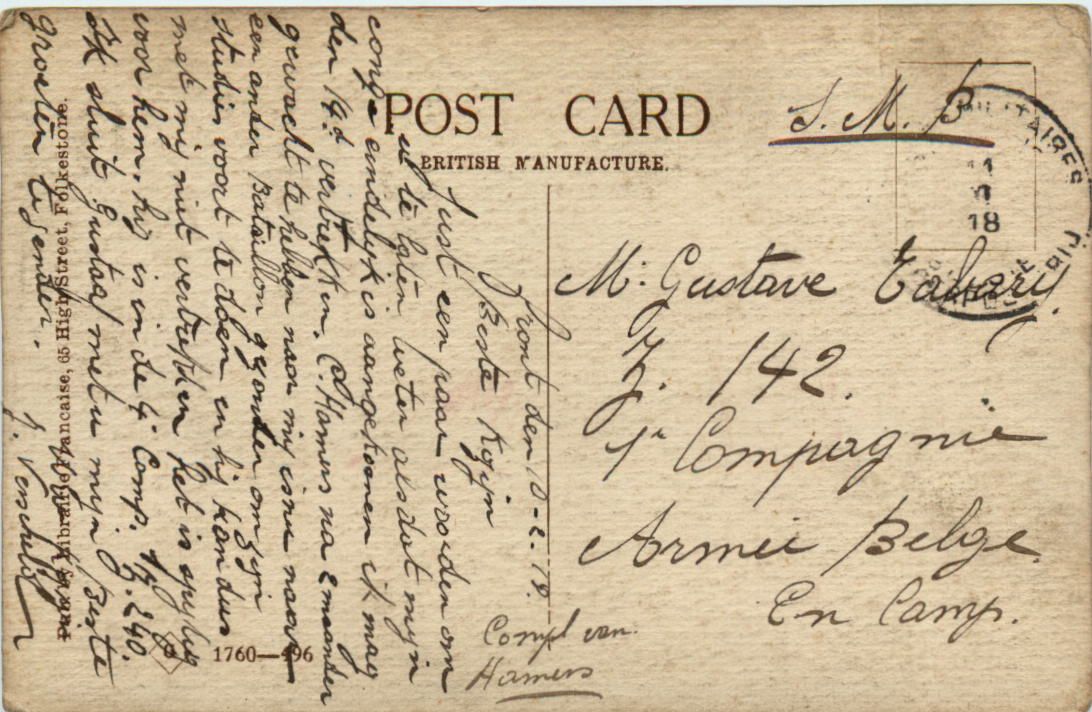 POST CARD
BRITISH MANUFACTURE.
S. M. B
MILITAIRES
11
II
18
Mr. Gustave
Z. 142.
1e Compagnie
Armée Belge
En Camp.
front den 10-2.18.
Beste Kozijn
Just een paar woorden om
u te laten weten als dat mijn
congé eindelijk is aangekomen ik mag
den 14d vertrekken. C. Hamers na 2 maanden
gewacht te hebben naar mij is nu naar
een ander Bataillon gezonden om zijn
studien voort te doen en hij kan dus
met mij niet vertrekken het is spijtig
voor hem. hij is in de 4e Comp. Z. 240.
Ik sluit Gustaaf met u mijn Beste
groeten te zenden.
Compl van
Hamers
Pub. by Librairie Française, 65 High Street, Folkestone.
1760—496